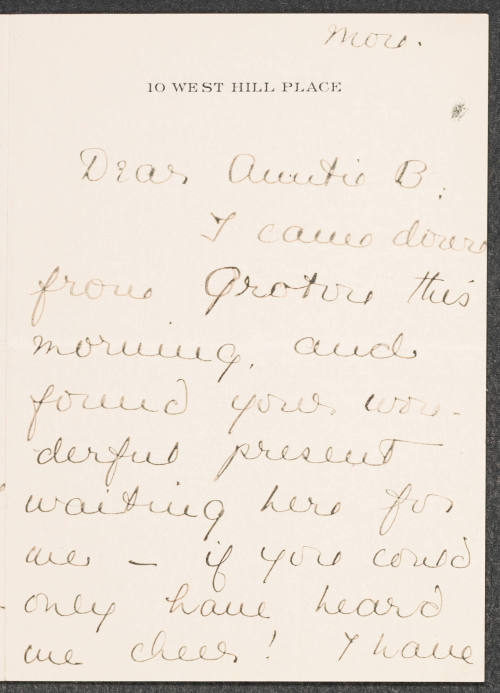 Mon.
10 WEST HILL PLACE
Dear Auntie B.
I came down
from Groton this
morning, and
found your won-
derful present
waiting here for
me – if you could
only have heard
me cheer! I have